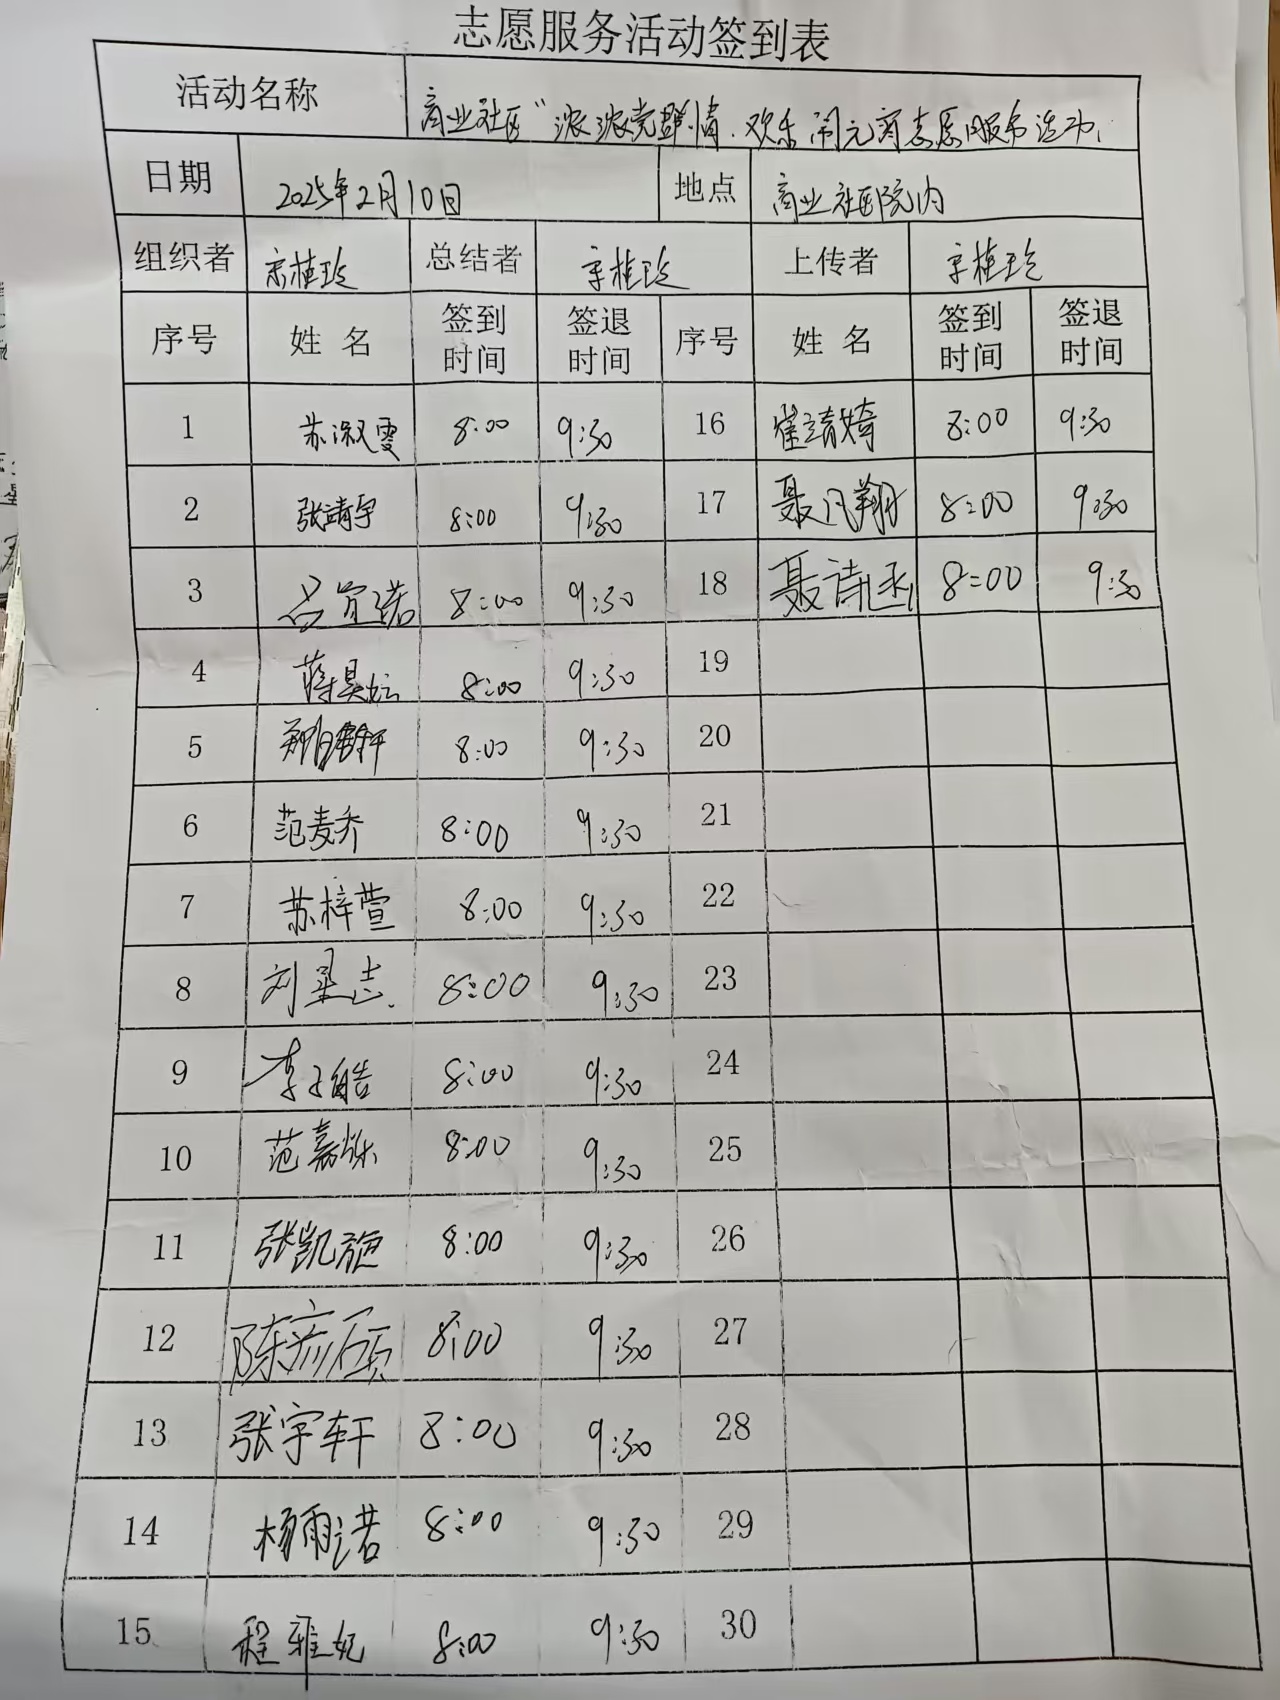 志愿服务活动签到表
活动名称 商业社区“浓浓党群情.欢乐闹元宵志愿服务活动.
日期 2025年2月10日 地点 商业社区院内
组织者 宗桂玲 总结者 宗桂玲 上传者 宗桂玲
序号 姓名 签到时间 签退时间 序号 姓名 签到时间 签退时间
1 苏淑雯 8:00 9:30 16 崔靖婍 8:00 9:30
2 张靖宇 8:00 9:30 17 聂凡翔 8:00 9:30
3 吕宜诺 8:00 9:30 18 聂诗函 8:00 9:30
4 蒋昊妘 8:00 9:30 19
5 郑 8:00 9:30 20
6 范麦乔 8:00 9:30 21
7 苏梓萱 8:00 9:30 22
8 刘星志 8:00 9:30 23
9 李子皓 8:00 9:30 24
10 范嘉烁 8:00 9:30 25
11 张凯旋 8:00 9:30 26
12 陈彦硕 8:00 9:30 27
13 张宇轩 8:00 9:30 28
14 杨雨诺 8:00 9:30 29
15 程雅妃 8:00 9:30 30